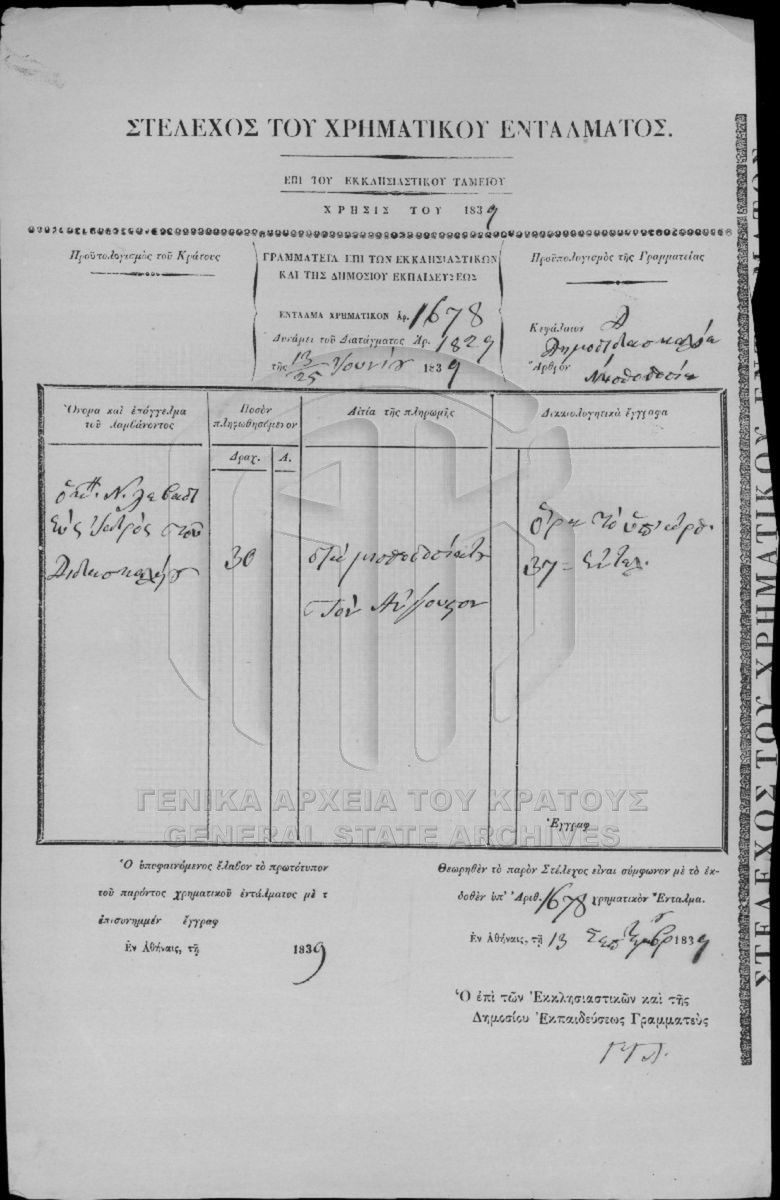 ΣΤΕΛΕΧΟΣ ΤΟΥ ΧΡΗΜΑΤΙΚΟΥ ΕΝΤΑΛΜΑΤΟΣ.
ΕΠΙ ΤΟΥ ΕΚΚΛΗΣΙΑΣΤΙΚΟΥ ΤΑΜΕΙΟΥ
ΧΡΗΣΙΣ ΤΟΥ 1839
Προϋπολογισμὸς τοῦ Κράτους
ΓΡΑΜΜΑΤΕΙΑ ΕΠΙ ΤΩΝ ΕΚΚΛΗΣΙΑΣΤΙΚΩΝ
ΚΑΙ ΤΗΣ ΔΗΜΟΣΙΟΥ ΕΚΠΑΙΔΕΥΣΕΩΣ
ΕΝΤΑΛΜΑ ΧΡΗΜΑΤΙΚΟΝ Ἀρ. 1678
Δυνάμει τοῦ Διατάγματος Ἀρ. 1829
τῆς 13/25 Ἰουνίου 1839
Προϋπολογισμὸς τῆς Γραμματείας
Κεφάλαιον Α
Δημοδιδασκαλεῖα
Ἄρθρον
Μισθοδοσία
Ὄνομα καὶ ἐπάγγελμα
τοῦ λαμβάνοντος
Ποσὸν
πληρωθησόμενον
Δραχ. Λ.
Αἰτία τῆς πληρωμῆς
Δικαιολογητικὰ ἔγγραφα
Ν. Λεβαδ
εὺς Ἰατρὸς τοῦ
Διδασκαλείου
30
διὰ μισθοδοσίαν
τὸν Αὔγουστον
ὅρα τὸ ὑπ' ἀρθ.
37 = ἔνταλ.
Ἔγγραφ
ΓΕΝΙΚΑ ΑΡΧΕΙΑ ΤΟΥ ΚΡΑΤΟΥΣ
GENERAL STATE ARCHIVES
Ὁ ὑποφαινόμενος ἔλαβον τὸ πρωτότυπον
τοῦ παρόντος χρηματικοῦ ἐντάλματος μὲ τ
ἐπισυνημμέν ἔγγραφ
Ἐν Ἀθήναις, τῇ 1839
Θεωρηθὲν τὸ παρὸν Στέλεχος εἶναι σύμφωνον μὲ τὸ ἐκ-
δοθὲν ὑπ' Ἀριθ. 1678 χρηματικὸν Ἔνταλμα.
Ἐν Ἀθήναις, τῇ 13 Σεπτεμβρ 1839
Ὁ ἐπὶ τῶν Ἐκκλησιαστικῶν καὶ τῆς
Δημοσίου Ἐκπαιδεύσεως Γραμματεὺς
ΣΤΕΛΕΧΟΣ ΤΟΥ ΧΡΗΜΑΤΙΚΟΥ ΕΝΤΑΛΜΑΤΟΣ